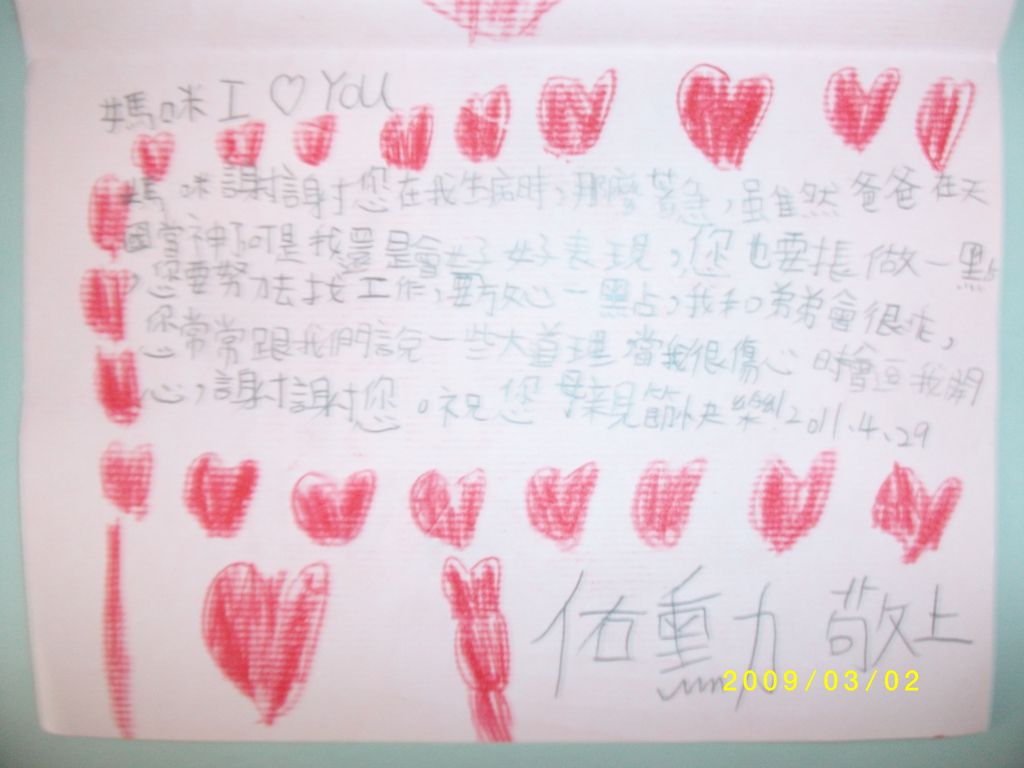 媽咪 I ♡ YOU
媽咪謝謝您在我生病時,那麼緊急,雖然爸爸在天
國當神可是我還是會好好表現,您也要振做一點
,您要努力去找工作,要放心一點,我和弟弟會很乖,
您常常跟我們說一些大道理當我很傷心時會逗我開
心,謝謝您。祝您母親節快樂!2011.4.29
佑動 敬上
2009/03/02